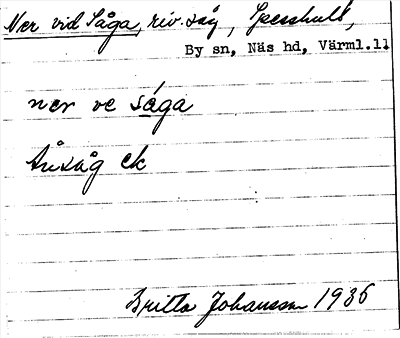 Ner vid Såga, riv. såg, Spesshult,
By sn, Näs hd, Värml.ll
ner ve såga
Åvsåg ek
Britta Johansson 1936